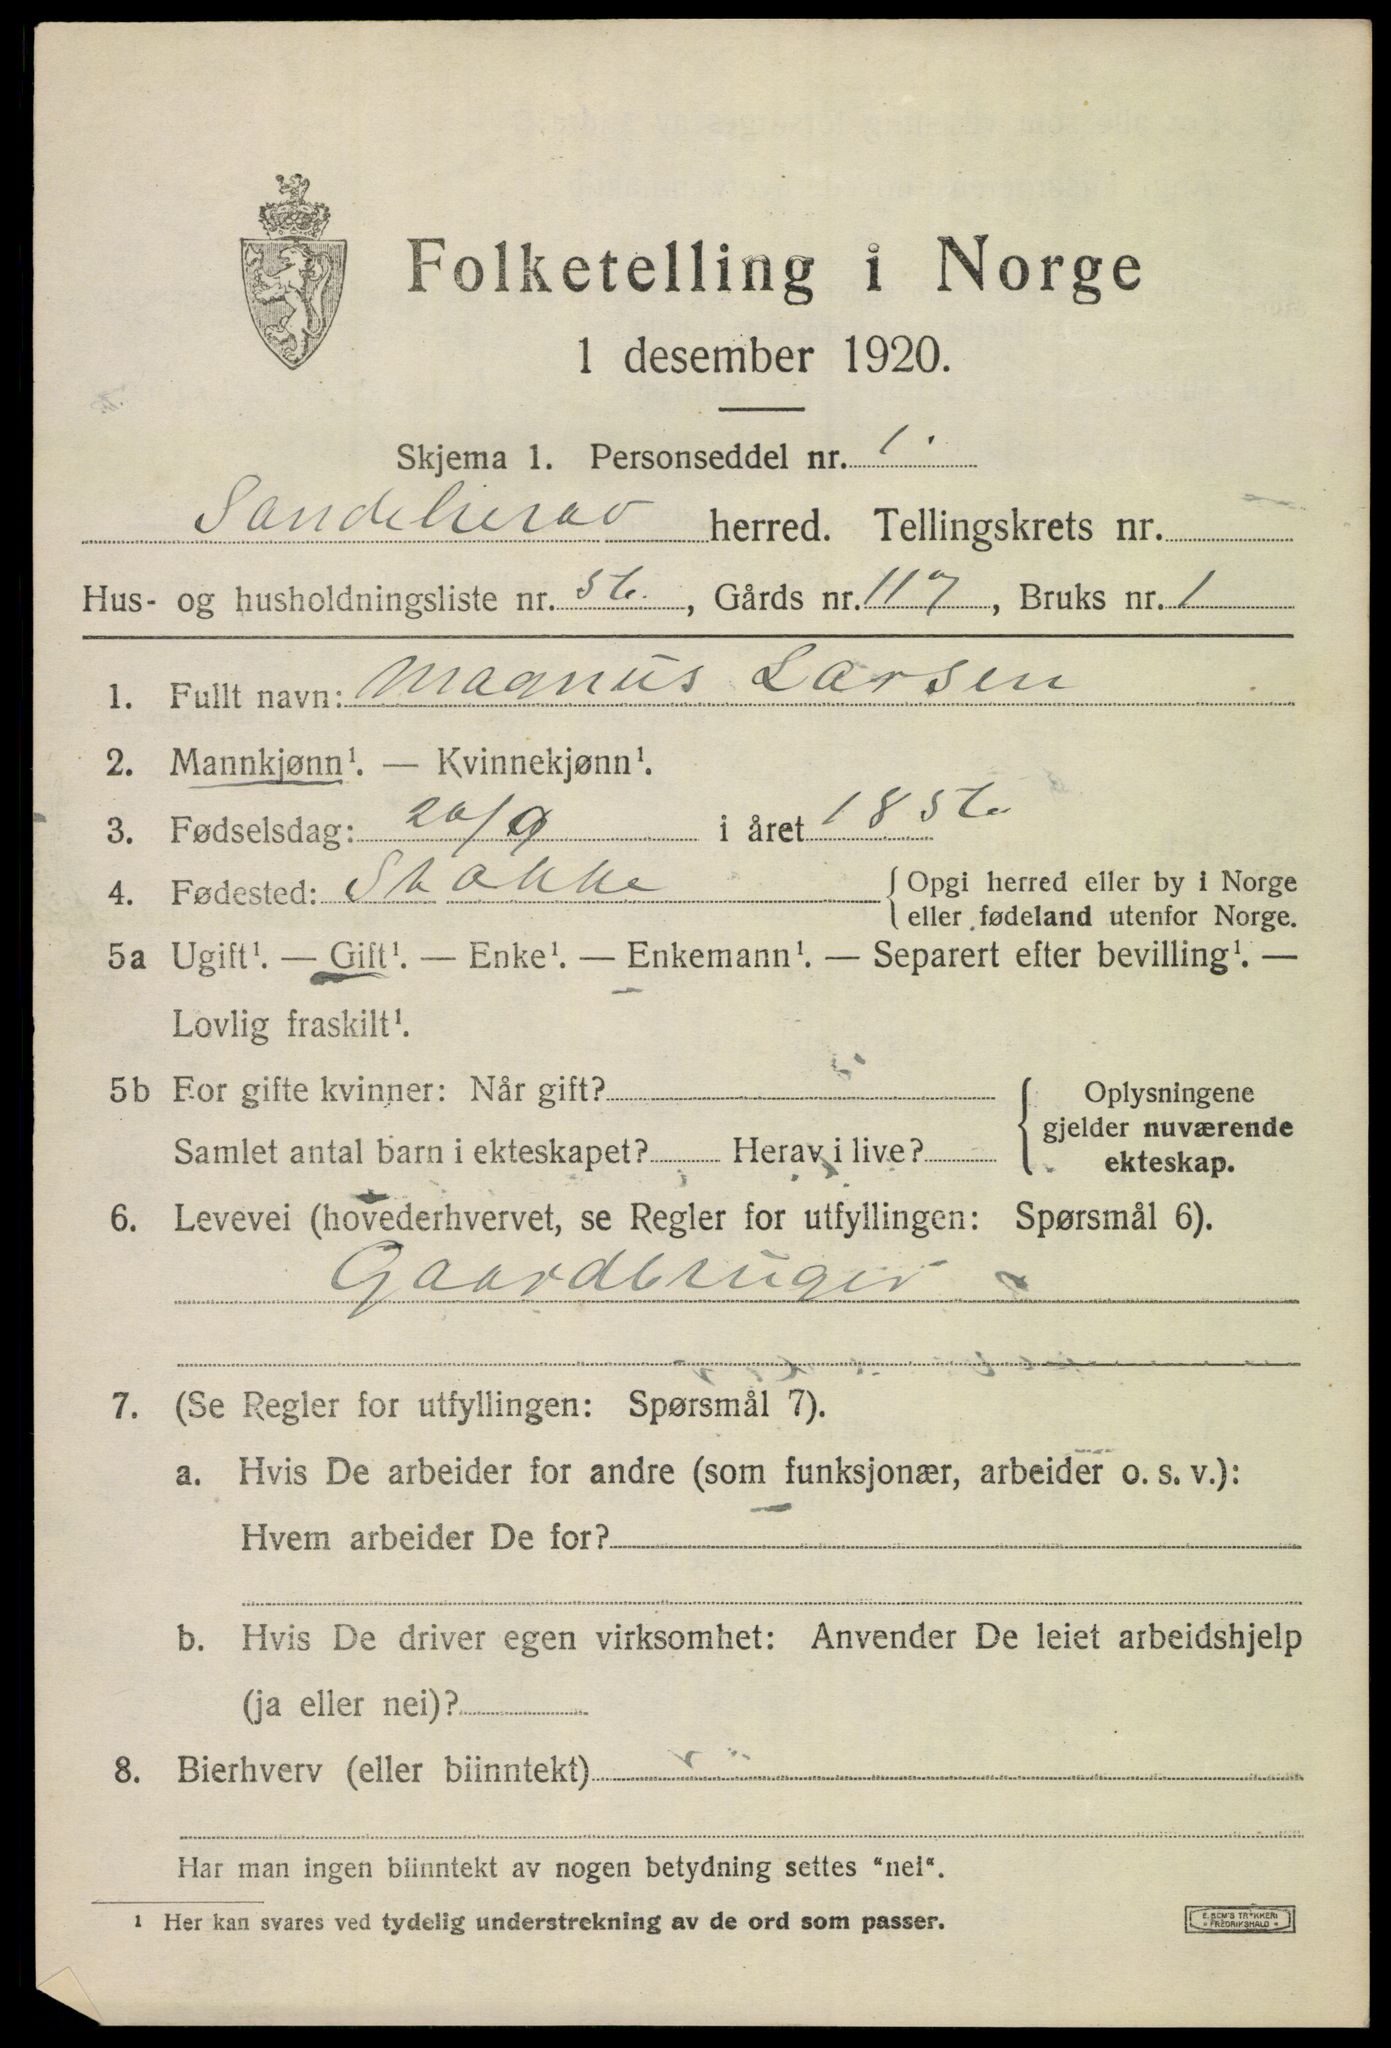 Folketelling i Norge
1 desember 1920.
Skjema 1. Personseddel nr. 1.
Sandeherav herred. Tellingskrets nr.
Hus- og husholdningsliste nr. 56., Gårds nr. 117, Bruks nr. 1
1. Fullt navn: Magnus Larsen
2. Mannkjønn¹. — Kvinnekjønn¹.
3. Fødselsdag: 20/9 i året 1856
4. Fødested: Stokke
{ Opgi herred eller by i Norge
eller fødeland utenfor Norge.
5a Ugift¹. — Gift¹. — Enke¹. — Enkemann¹. — Separert efter bevilling¹. —
Lovlig fraskilt¹.
5b For gifte kvinner: Når gift?
Samlet antal barn i ekteskapet? Herav i live?
{ Oplysningene
gjelder nuværende
ekteskap.
6. Levevei (hovederhvervet, se Regler for utfyllingen: Spørsmål 6).
Gaardbruger
7. (Se Regler for utfyllingen: Spørsmål 7).
a. Hvis De arbeider for andre (som funksjonær, arbeider o. s. v.):
Hvem arbeider De for?
b. Hvis De driver egen virksomhet: Anvender De leiet arbeidshjelp
(ja eller nei)?
8. Bierhverv (eller biinntekt)
Har man ingen biinntekt av nogen betydning settes "nei".
¹ Her kan svares ved tydelig understrekning av de ord som passer.
E. SEM'S TRYKKERI
FREDRIKSHALD